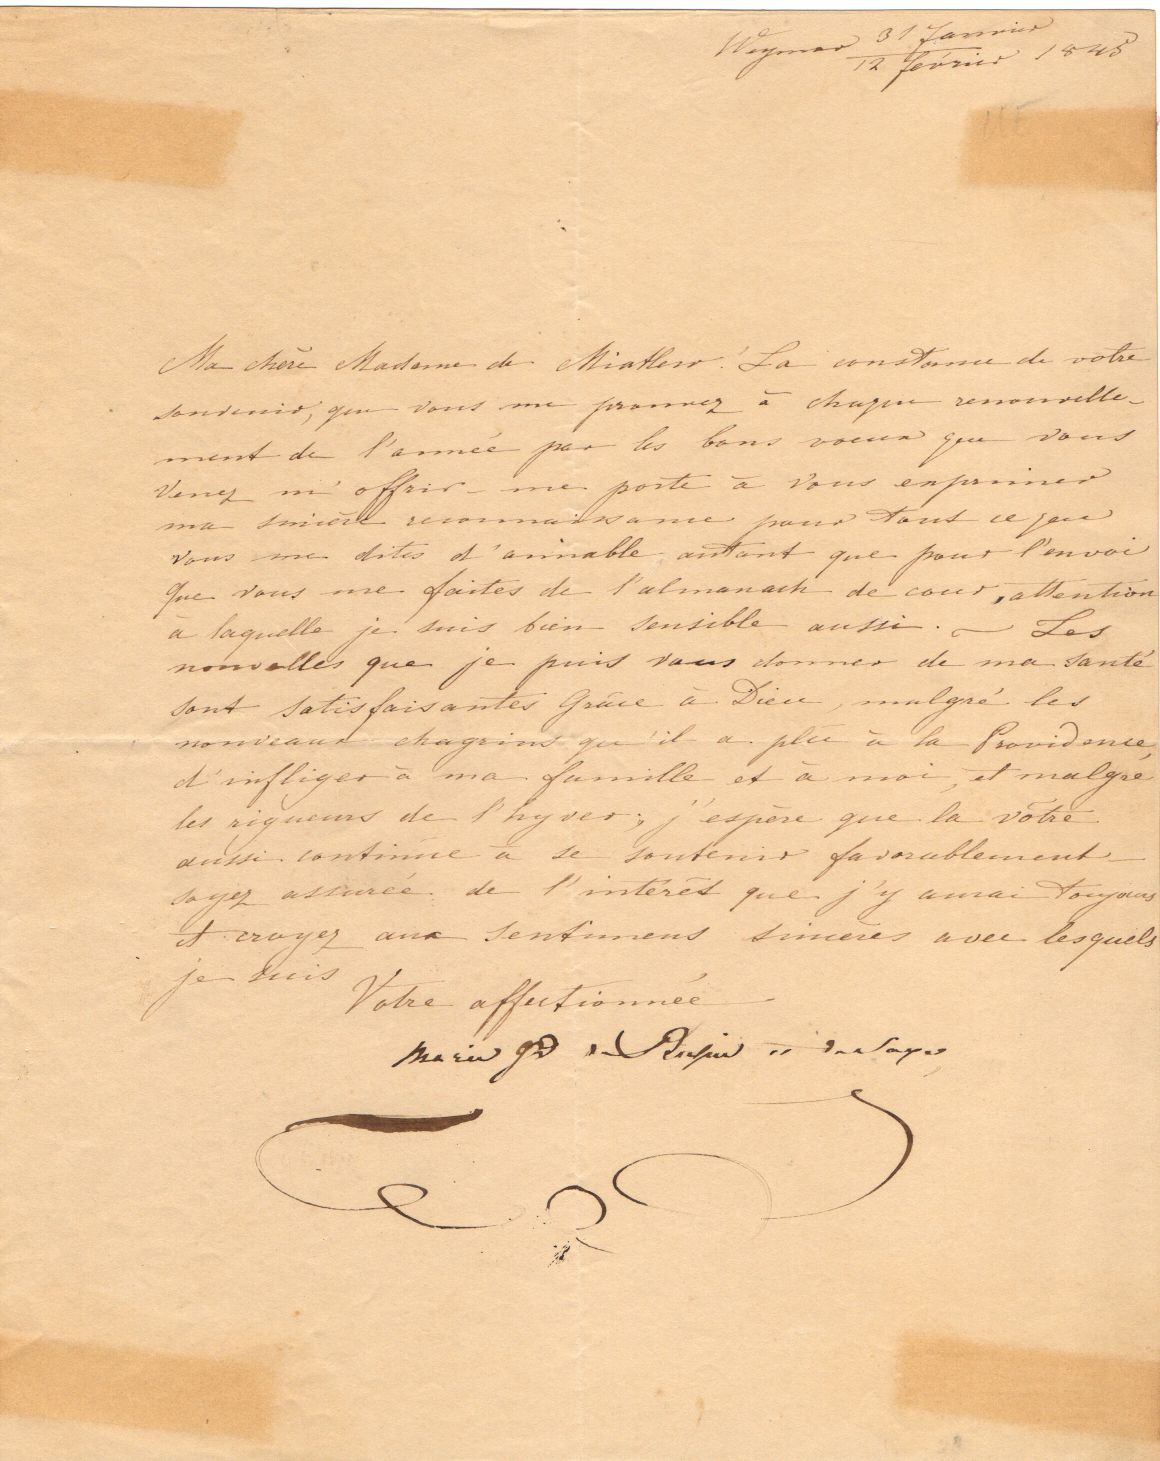 Weymar 31 Janvier
12 février 1845
Ma chère Madame de Miatlew! La constance de votre
souvenir, que vous me prouvez à chaque renouvelle-
ment de l'année par les bons voeux que vous
venez m'offrir - me porte à vous exprimer
ma sincère reconnaissance pour tout ce que
vous me dites d'aimable autant que pour l'envoi
que vous me faites de l'almanach de cour, attention
à laquelle je suis bien sensible aussi. — Les
nouvelles que je puis vous donner de ma santé
sont satisfaisantes Grâce à Dieu, malgré les
nouveaux chagrins qu'il a plû à la Providence,
d'infliger à ma famille et à moi, et malgré
les rigueurs de l'hyver; j'espère que la vôtre
aussi continue à se soutenir favorablement -
soyez assurée de l'intérêt que j'y aurai toujours
et croyez aux sentimens sincères avec lesquels
je suis
Votre affectionnée
Marie gd de Russie